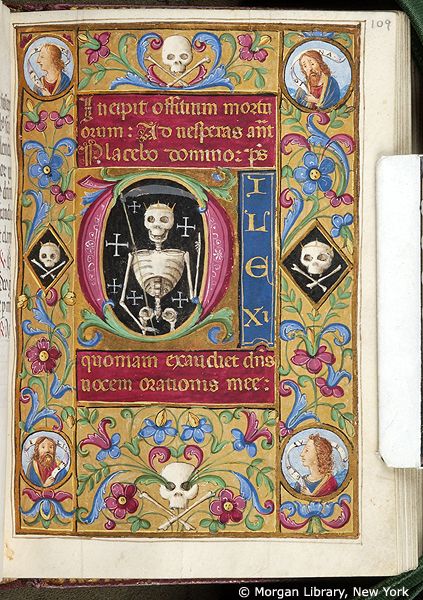 109
Incipit offitium mortu
orum: Ad vesperas ant
Placebo domino: ps
D
I
L
E
XI
quoniam exaudiet dns
vocem orationis mee:
© Morgan Library, New York